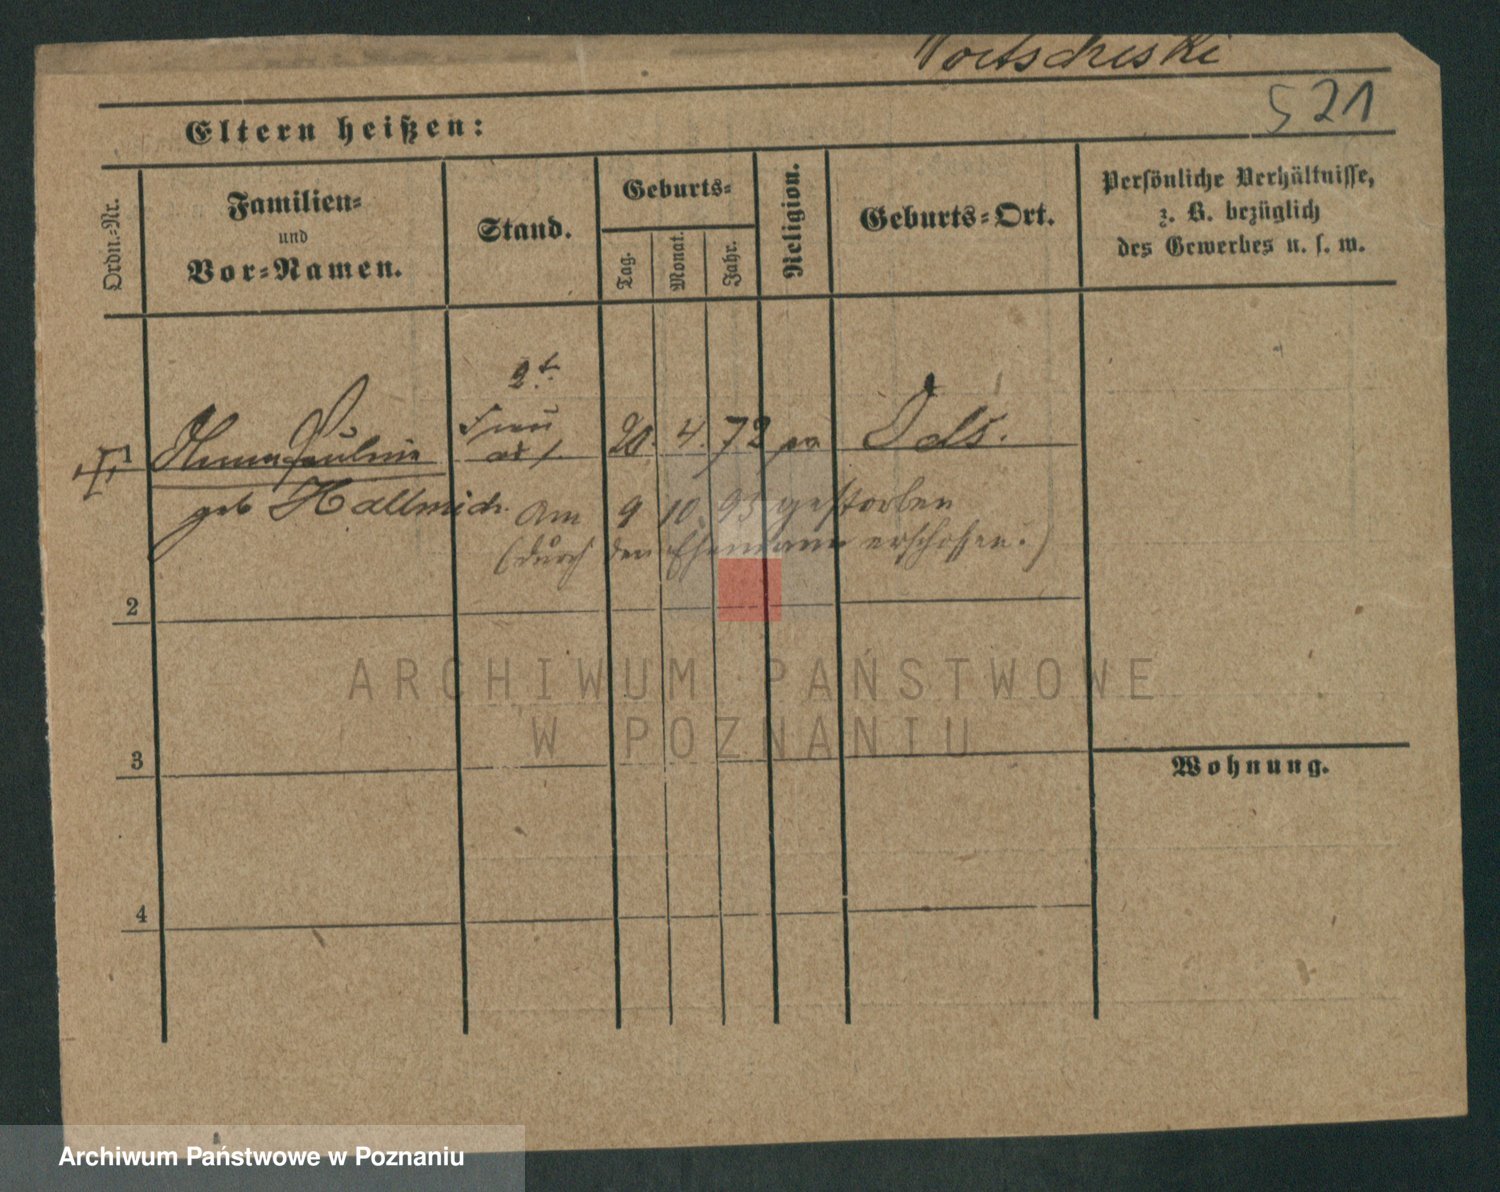 Woitscheski
521
Eltern heißen:
Ordn.-Nr.
Familien-
und
Vor-Namen.
Stand.
Geburts-
Tag.
Monat.
Jahr.
Religion.
Geburts-Ort.
Persönliche Verhältnisse,
z. B. bezüglich
des Gewerbes u. s. w.
1 Anna Pauline 2t. Frau 20. 4. 72 Oels.
geb Hallmich. Am 9 10. 95 gestorben
(durch den Ehemann erschossen.)
2
3
Wohnung.
4
ARCHIWUM PAŃSTWOWE
W POZNANIU
Archiwum Państwowe w Poznaniu